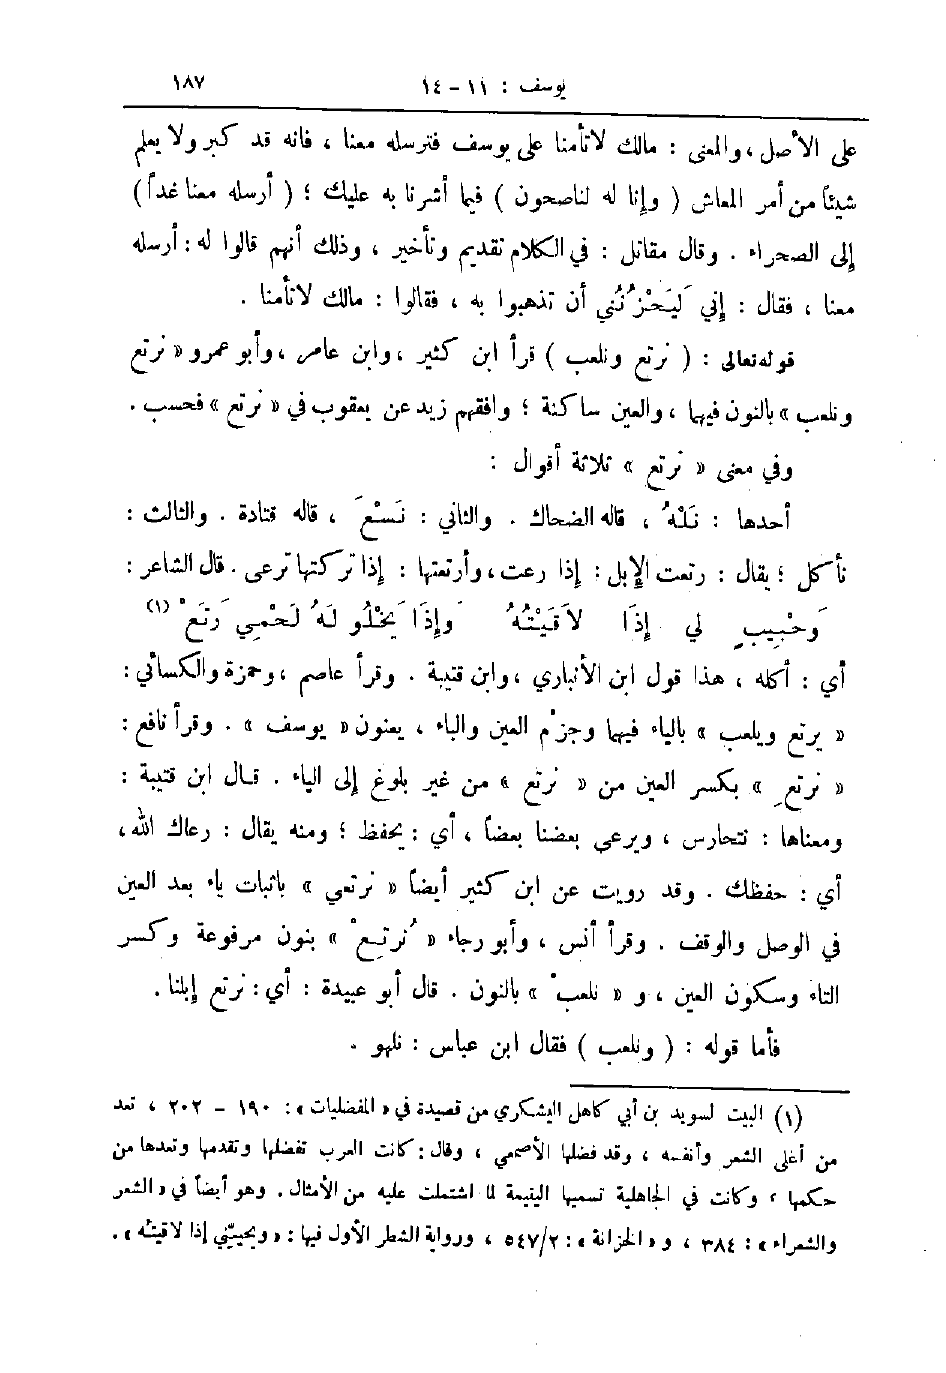 يوسف : ١١ - ١٤ ١٨٧
على الأصل ، والمعنى : مالك لاتأمنا على يوسف فترسله معنا ، فانه قد كبر ولا يعلم
شيئاً من أمر المعاش ( وإنا له لناصحون ) فيما أشرنا به عليك ؛ ( أرسله معنا غداً )
إلى الصحراء . وقال مقاتل : في الكلام تقديم وتأخير ، وذلك أنهم قالوا له : أرسله
معنا ، فقال : إني لَيَحْزُنُني أن تذهبوا به ، فقالوا : مالك لاتأمنا .
قوله تعالى : ( نرتع ونلعب ) قرأ ابن كثير ، وابن عامر ، وأبو عمرو « نرتع
ونلعب » بالنون فيهما ، والعين ساكنة ؛ وافقهم زيد عن يعقوب في « نرتع » فحسب .
وفي معنى « نرتع » ثلاثة أقوال :
أحدها : نَلْهُ ، قاله الضحاك . والثاني : نَسْعَ ، قاله قتادة . والثالث :
نأكل ؛ يقال : رتعت الإبل : إذا رعت ، وأرتعتها : إذا تركتها ترعى . قال الشاعر :
وَحْبِيبٍ لي إِذَا لاَقَيْتُهُ وإِذَا يَخْلُو لَهُ لَحْمِي رَتَعْ (١)
أي : أكله ، هذا قول ابن الأنباري ، وابن قتيبة . وقرأ عاصم ، وحمزة والكسائي :
« يرتع ويلعب » بالياء فيهما وجزم العين والباء ، يعنون « يوسف » . وقرأ نافع :
« نرتعِ » بكسر العين من « نرتع » من غير بلوغ إلى الياء . قال ابن قتيبة :
ومعناها : نتحارس ، ويرعى بعضنا بعضاً ، أي : يحفظ ؛ ومنه يقال : رعاك الله ،
أي : حفظك . وقد رويت عن ابن كثير أيضاً « نرتعي » باثبات ياء بعد العين
في الوصل والوقف . وقرأ أنس ، وأبو رجاء « نُرتِعْ » بنون مرفوعة وكسر
التاء وسكون العين ، و « نلعبْ » بالنون . قال أبو عبيدة : أي : نرتع إبلنا .
فأما قوله : ( ونلعب ) فقال ابن عباس : نلهو .
(١) البيت لسويد بن أبي كاهل اليشكري من قصيدة في « المفضليات » : ١٩٠ - ٢٠٢ ، تعد
من أغلى الشعر وأنفسه ، وقد فضلها الأصمعي ، وقال : كانت العرب تفضلها وتقدمها وتعدها من
حكمها ، وكانت في الجاهلية تسميها اليتيمة لما اشتملت عليه من الأمثال . وهو أيضاً في « الشعر
والشعراء » : ٣٨٤ ، و « الخزانة » : ٥٤٧/٢ ، ورواية الشطر الأول فيها : « ويحييّني إذا لاقيتُه » .